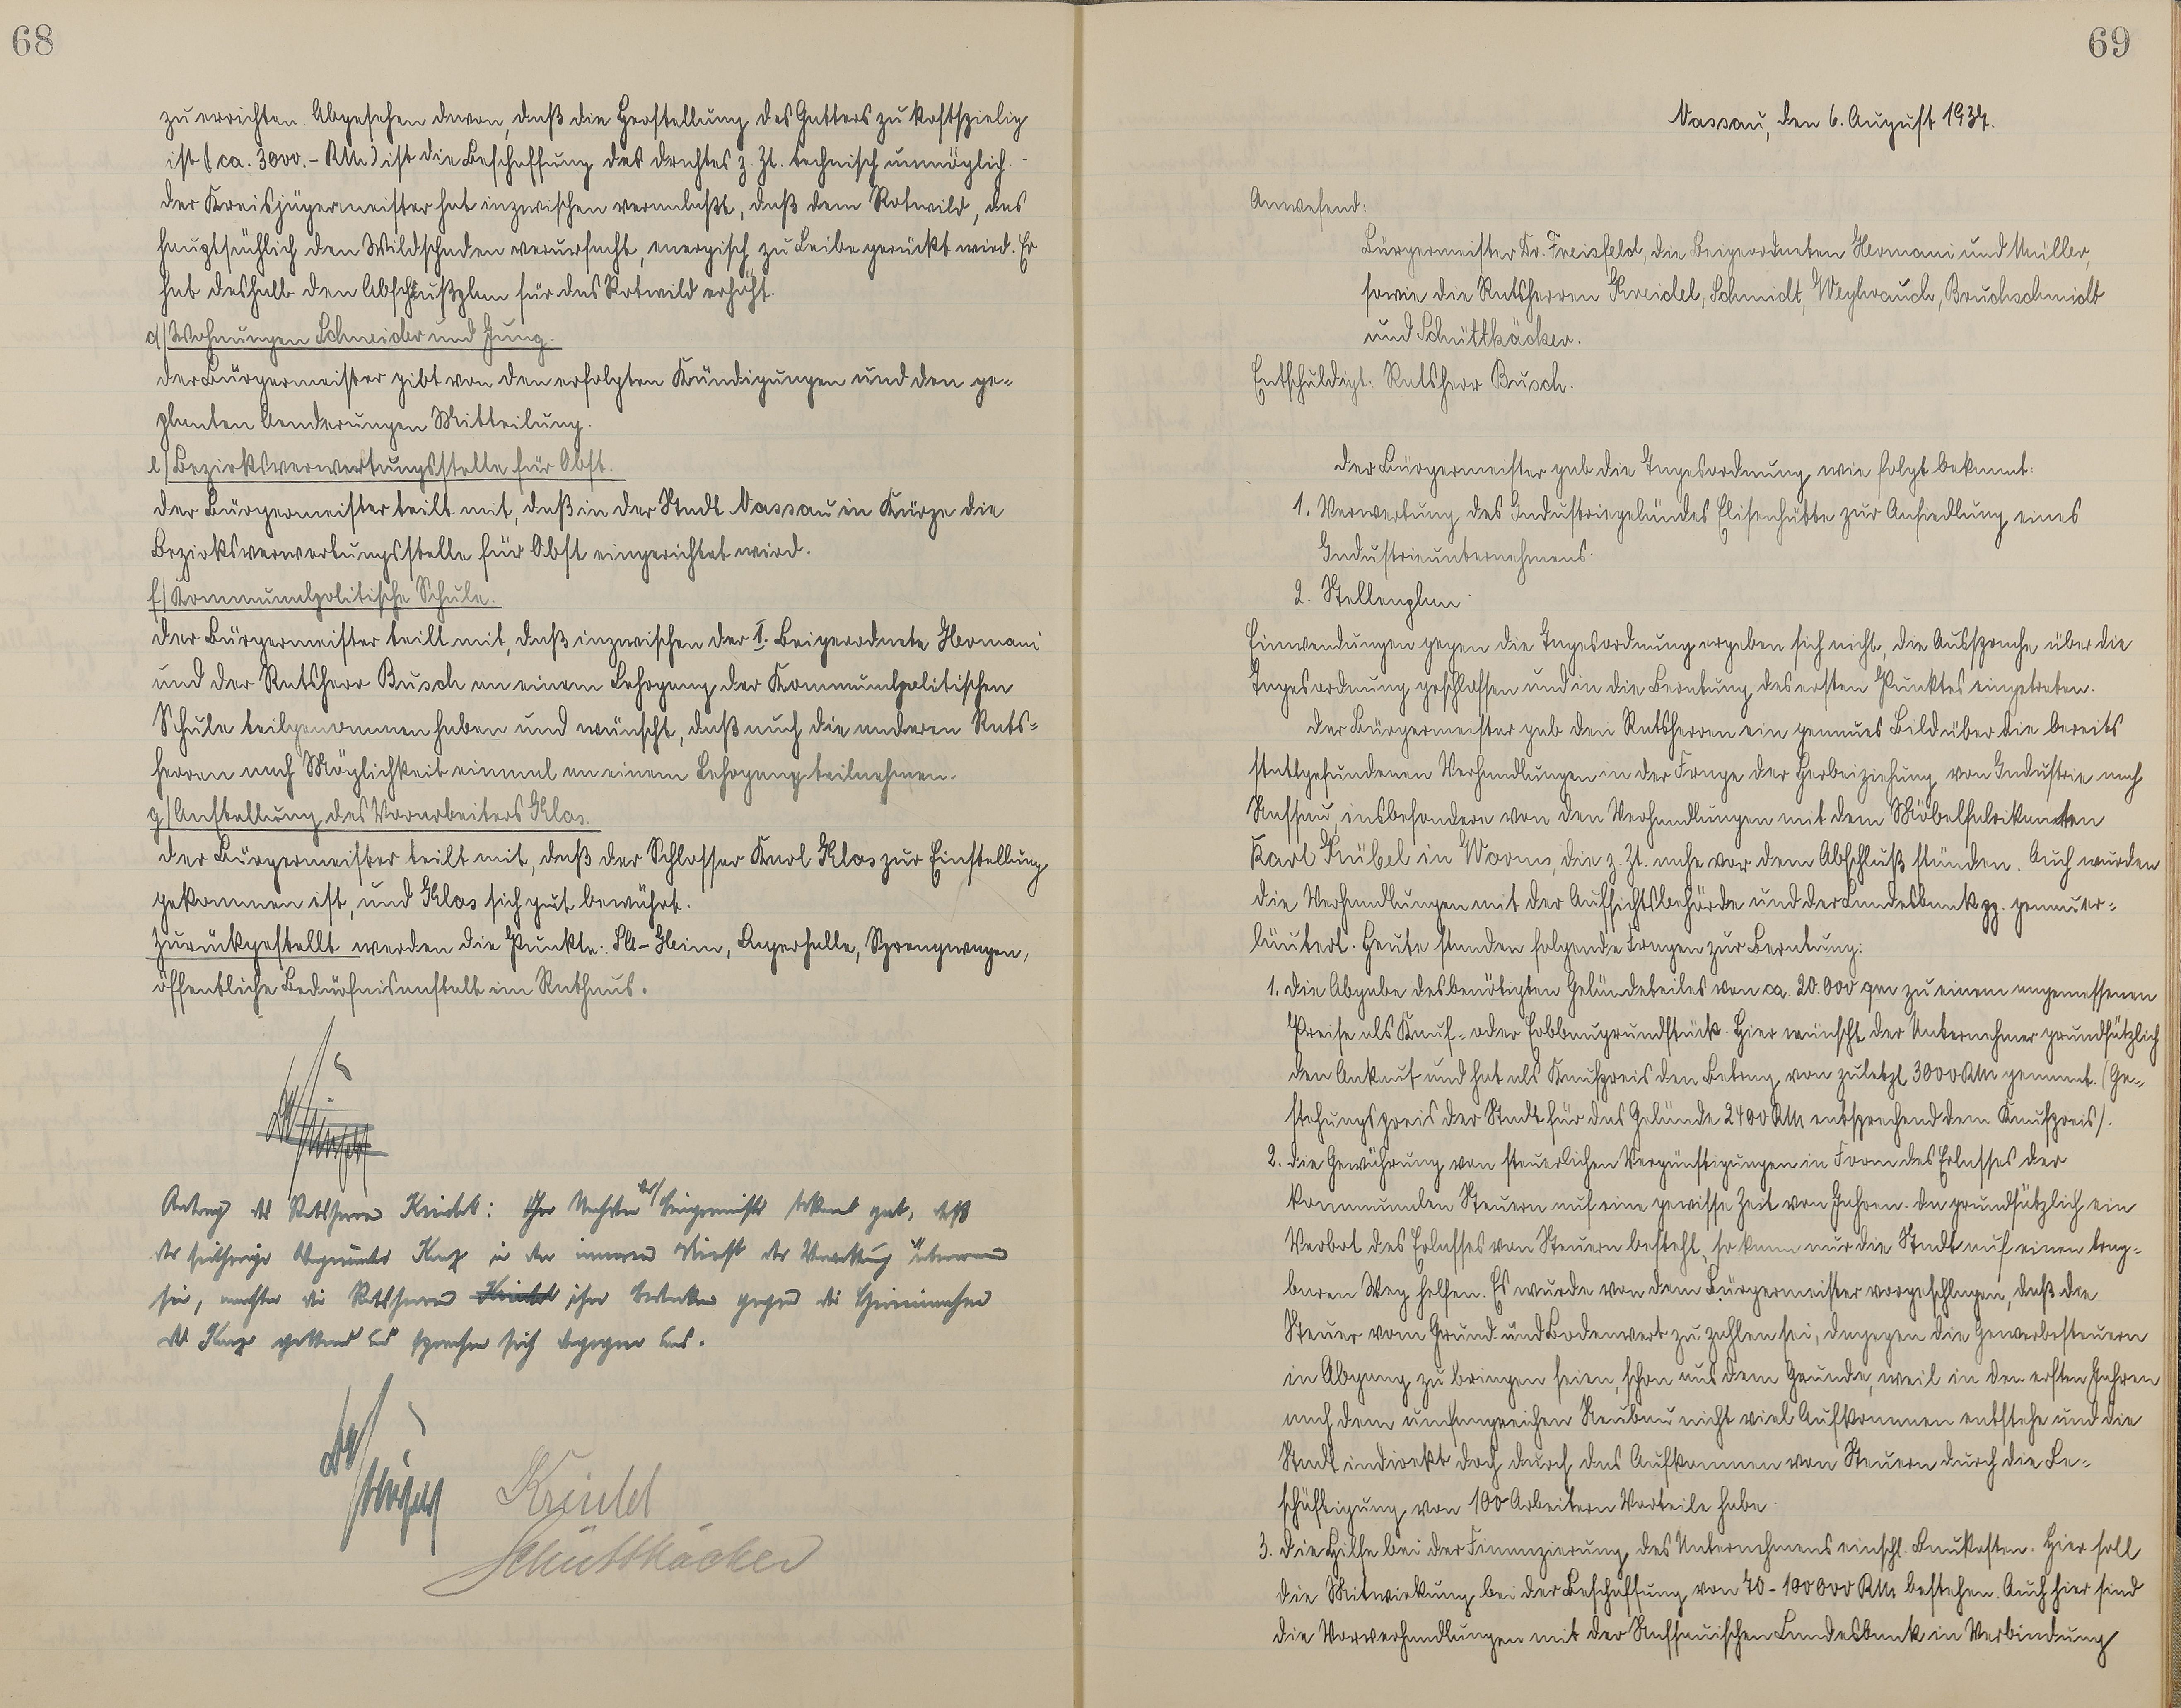 68
zu errichten. Abgesehen davon, daß die Herstellung des Gatters zu kostspielig
ist (ca. 3000.- RM) ist die Beschaffung des Drahtes z. Zt. technisch unmöglich. -
Der Kreisjägermeister hat inzwischen veranlaßt, daß dem Rotwild, das
hauptsächlich den Wildschaden verursacht, energisch zu Leibe gerückt wird. Er
hat deshalb den Abschußplan für das Rotwild erhöht.
d) Wohnungen Schneider und Jung.
Der Bürgermeister gibt von den erfolgten Kündigungen und den ge=
planten Aenderungen Mitteilung.
e) Bezirksverwertungsstelle für Obst.
Der Bürgermeister teilt mit, daß in der Stadt Nassau in Kürze die
Bezirksverwertungsstelle für Obst eingerichtet wird.
f) Kommunalpolitische Schule.
Der Bürgermeister teilt mit, daß inzwischen der I. Beigeordnete Hermani
und der Ratsherr Busch an einem Lehrgang der Kommunalpolitischen
Schule teilgenommen haben und wünscht, daß auch die anderen Rats=
herren nach Möglichkeit einmal an einem Lehrgang teilnehmen.
g) Anstellung des Vorarbeiters Klos.
Der Bürgermeister teilt mit, daß der Schlosser Karl Klos zur Einstellung
gekommen ist, und Klos sich gut bewährt.
Zurückgestellt werden die Punkte: SA-Heim, Lagerhalle, Sprengwagen,
öffentliche Bedürfnisanstalt im Rathaus.
Antrag des Ratsherrn Kreidel: der Bürgermeister bekannt gab, daß
der seitherige Kurz in den inneren Dienst der Verwaltung übernommen
sei, machten die Ratsherren Kreidel ihre Bedenken gegen die Hereinnahme
des Kurz geltend und sprachen sich dagegen aus.
Kreidel
Schüttkäcker
69
Nassau, den 6. August 1937.
Anwesend:
Bürgermeister Dr. Freisfeld, die Beigeordneten Hermani und Müller,
sowie die Ratsherren Kreidel, Schmidt, Weyhrauch, Bruchschmidt
und Schüttkäcker.
Entschuldigt: Ratsherr Busch.
Der Bürgermeister gab die Tagesordnung wie folgt bekannt:
1. Verwertung des Industriegeländes Elisenhütte zur Ansiedlung eines
Industrieunternehmens.
2. Stellenplan
Einwendungen gegen die Tagesordnung ergeben sich nicht, die Aussprache über die
Tagesordnung geschlossen und in die Beratung des ersten Punktes eingetreten.
Der Bürgermeister gab den Ratsherren ein genaues Bild über die bereits
stattgefundenen Verhandlungen in der Frage der Herbeiziehung von Industrie nach
Nassau, insbesondere von den Verhandlungen mit dem Möbelfabrikanten
Karl Kübel in Worms, die z. Zt. nahe vor dem Abschluß stünden. Auch wurden
die Verhandlungen mit der Aufsichtsbehörde und der Landesbank pp. genau er=
läutert. Heute standen folgende Fragen zur Beratung:
1. Die Abgabe des benötigten Geländeteiles von ca. 20.000 qm zu einem angemessenen
Preise als Kauf- oder Erbbaugrundstück. Hier wünscht der Unternehmer grundsätzlich
den Ankauf und hat als Kaufpreis den Betrag von zuletzt 3000 RM genannt. (Ge=
stehungspreis der Stadt für das Gelände 2400 RM entsprechend dem Kaufpreis).
2. Die Gewährung von steuerlichen Vergünstigungen in Form des Erlasses der
kommunalen Steuern auf eine gewisse Zeit von Jahren. Da grundsätzlich ein
Verbot des Erlasses von Steuern besteht, so kann nur die Stadt auf einen trag=
baren Weg helfen. Es wurde von dem Bürgermeister vorgeschlagen, daß die
Steuer vom Grund- und Bodenwert zu zahlen sei, dagegen die Gewerbesteuern
in Abgang zu bringen seien, schon aus dem Grunde, weil in den ersten Jahren
nach dem umfangreichen Neubau nicht viel Aufkommen entstehe und die
Stadt indirekt doch durch das Aufkommen von Steuern durch die Be=
schäftigung von 100 Arbeitern Vorteile habe.
3. Die Hilfe bei der Finanzierung des Unternehmens einschl. Baukosten. Hier soll
die Mitwirkung bei der Beschaffung von 70-100000 RM bestehen. Auch hier sind
die Vorverhandlungen mit der Nassauischen Landesbank in Verbindung